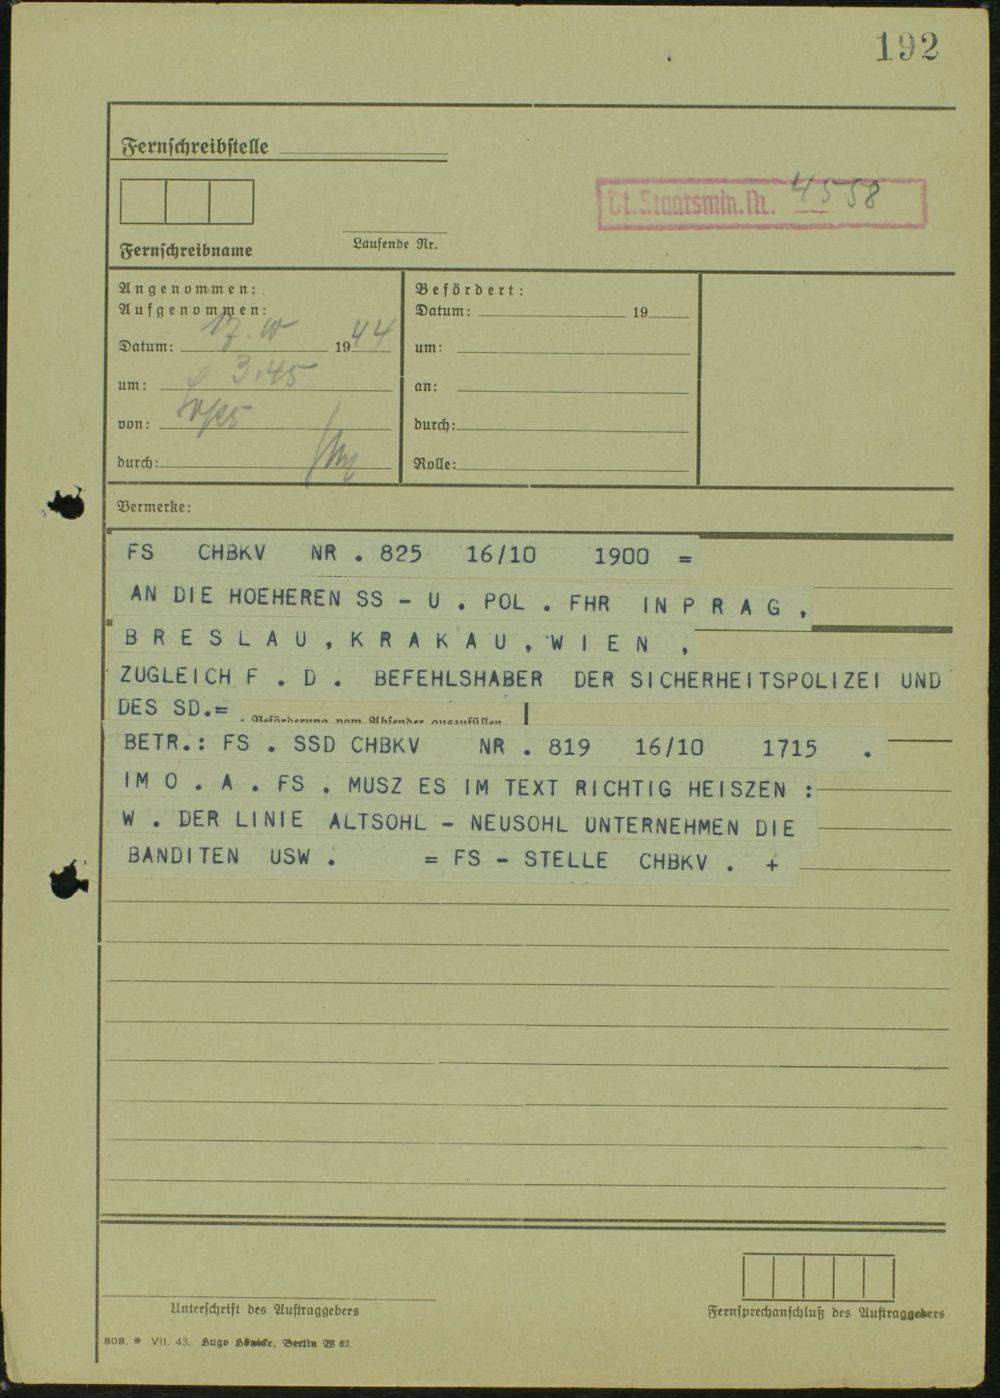 192
Fernschreibstelle
Dt. Staatsmin. Nr. 4558
Fernschreibname
Laufende Nr.
Angenommen:
Aufgenommen:
Datum: 17. 1944
um: 3.45
von:
durch:
Befördert:
Datum: 19
um:
an:
durch:
Rolle:
Vermerke:
FS CHBKV NR . 825 16/10 1900 =
AN DIE HOEHEREN SS - U . POL . FHR IN P R A G ,
B R E S L A U , K R A K A U , W I E N ,
ZUGLEICH F . D . BEFEHLSHABER DER SICHERHEITSPOLIZEI UND
DES SD.=
Beförderung vom Absender auszufüllen
BETR.: FS . SSD CHBKV NR . 819 16/10 1715 .
IM O . A . FS . MUSZ ES IM TEXT RICHTIG HEISZEN :
W . DER LINIE ALTSOHL - NEUSOHL UNTERNEHMEN DIE
BANDITEN USW . = FS - STELLE CHBKV . +
Unterschrift des Auftraggebers
Fernsprechanschluß des Auftraggebers
808. * VII. 43. Hugo Berlin W 62.